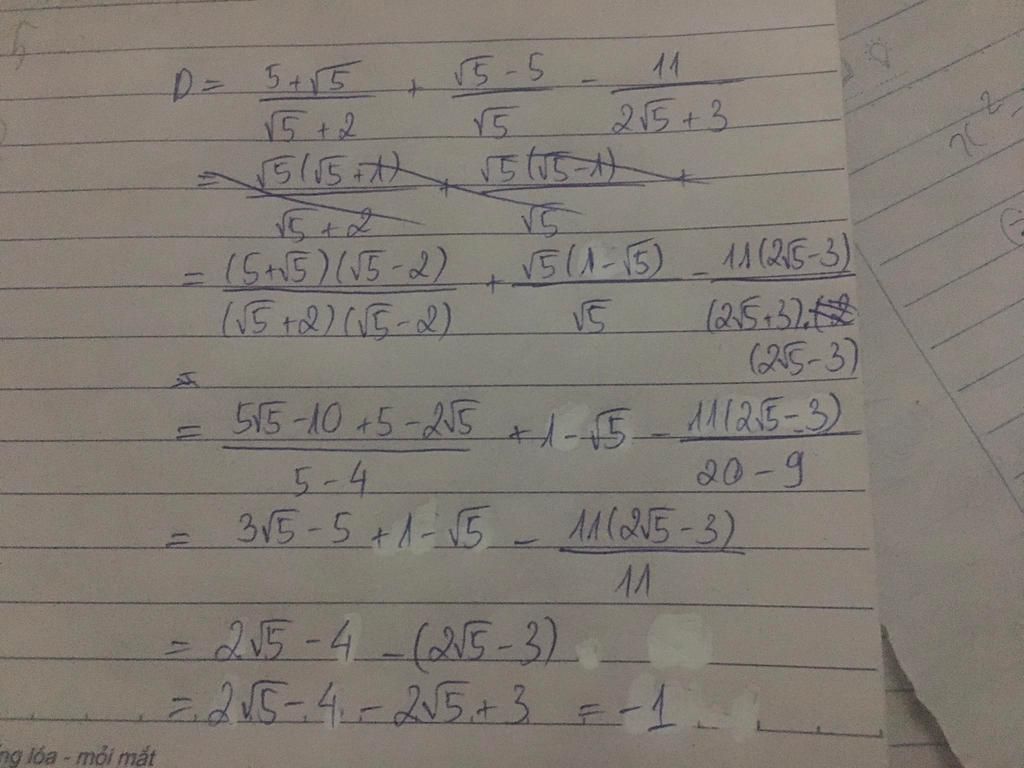 D = (5+√5)/(√5+2) + (√5-5)/√5 - 11/(2√5+3)
= √5(√5+1)/(√5+2) + √5(√5-1)/√5 +
= (5+√5)(√5-2)/((√5+2)(√5-2)) + √5(1-√5)/√5 - 11(2√5-3)/((2√5+3).(2√5-3))
=
= (5√5-10+5-2√5)/(5-4) + 1-√5 - 11(2√5-3)/(20-9)
= 3√5-5+1-√5 - 11(2√5-3)/11
= 2√5-4-(2√5-3)
= 2√5-4-2√5+3 = -1
lóa - mỏi mắt
x²